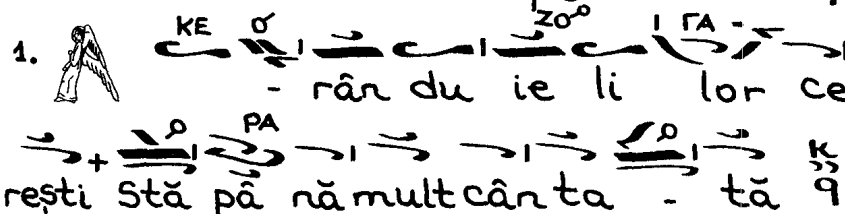 KE ZO ΓΑ
1. A - rân du ie li lor ce
PA
rești Stă pâ nă mult cân ta - tă